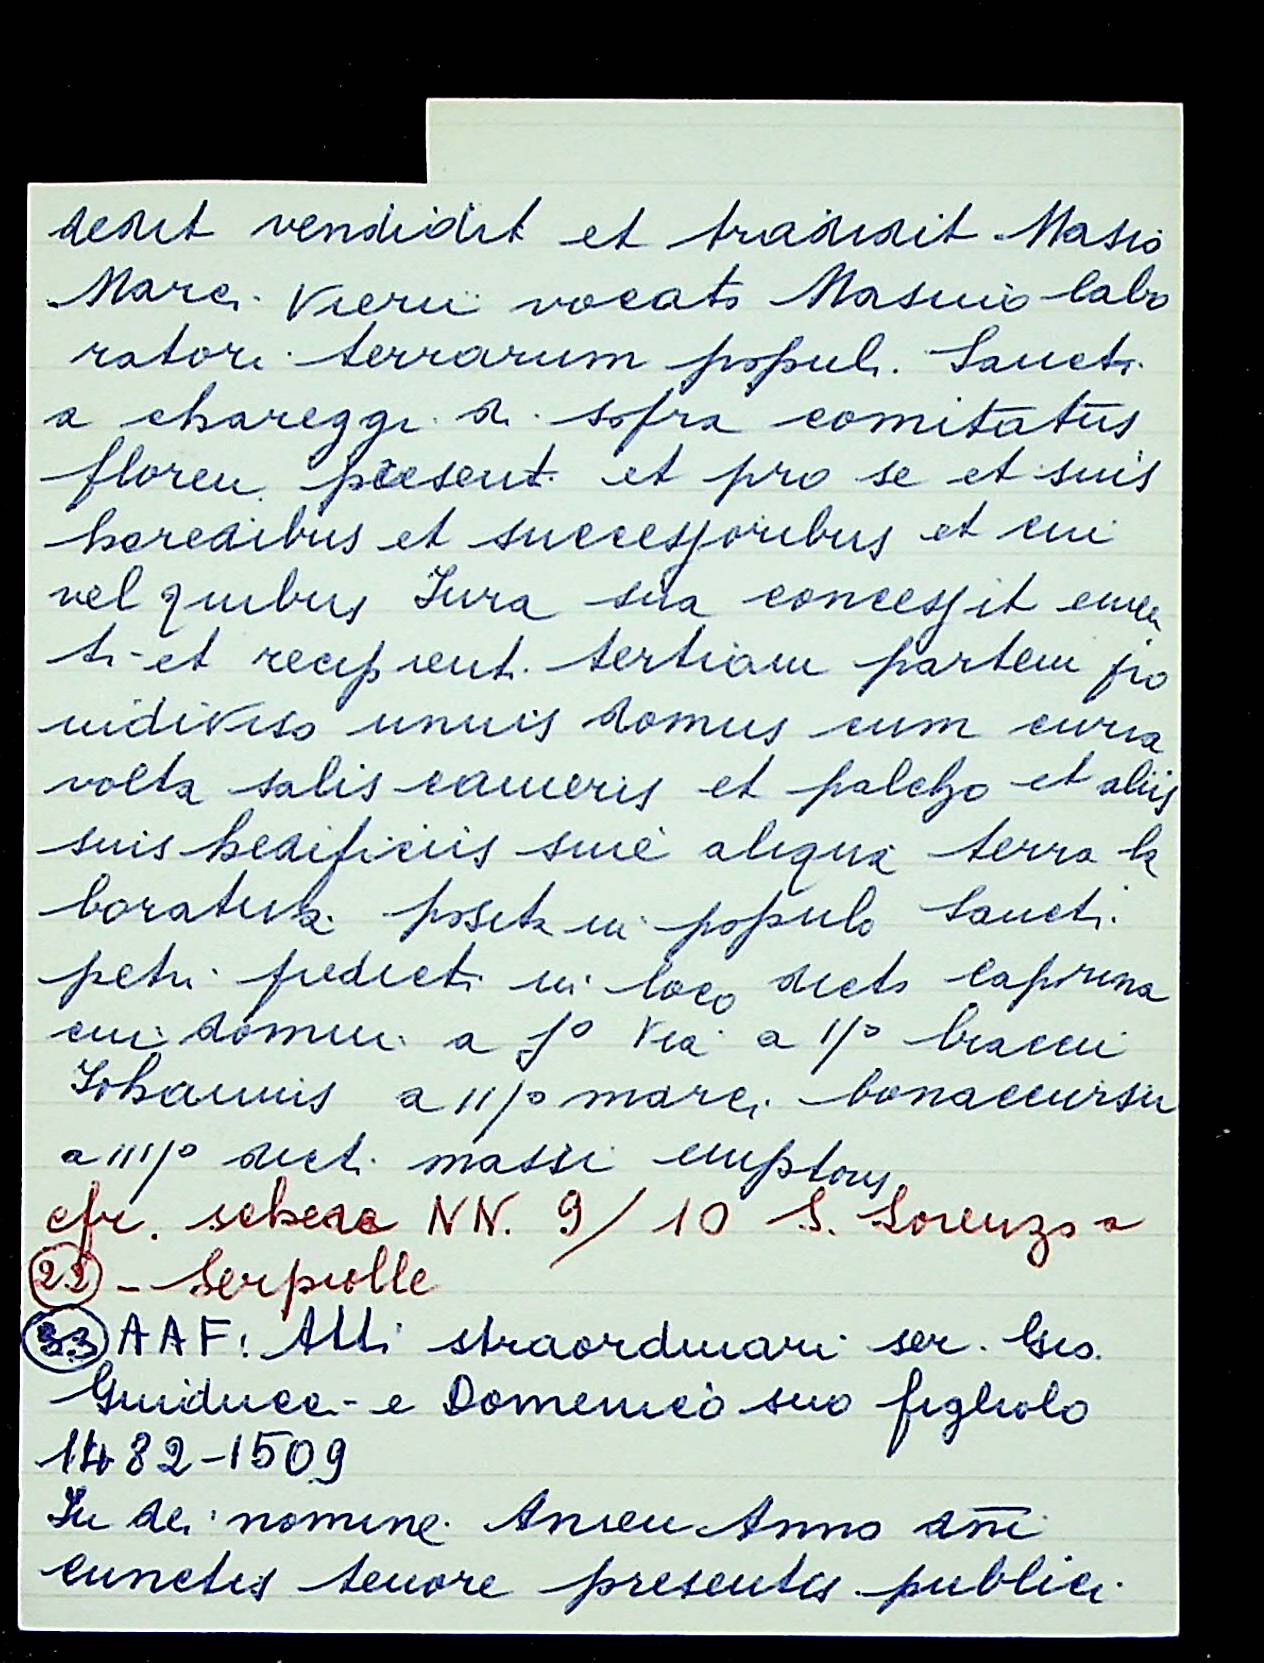 dedit vendidit et tradidit Masio
Marci Vierii vocato Masino labo
ratori terrarum populi Sancti
a chareggi di sopra comitatus
floren. present. et pro se et suis
heredibus et successoribus et cui
vel quibus Iura sua concessit emen
ti et recipient. tertiam partem pro
indiviso unius domus cum curia
volta salis cameris et palcho et aliis
suis hedificiis sine aliqua terra la
boratura posita in populo Sancti
petri predicti in loco dicto caprina
cui domui a I° via a II° braccii
Iohannis a III° marci bonaccursii
a IIII° dicti massi emptoris
cfr. schede NN. 9/10 S. Lorenzo a
22 - Serpiolle
33 AAF: Atti straordinari ser. Gio.
Guiducci e Domenico suo figliolo
1482-1509
In dei nomine Amen Anno dñi
cunctis tenore presentis publici